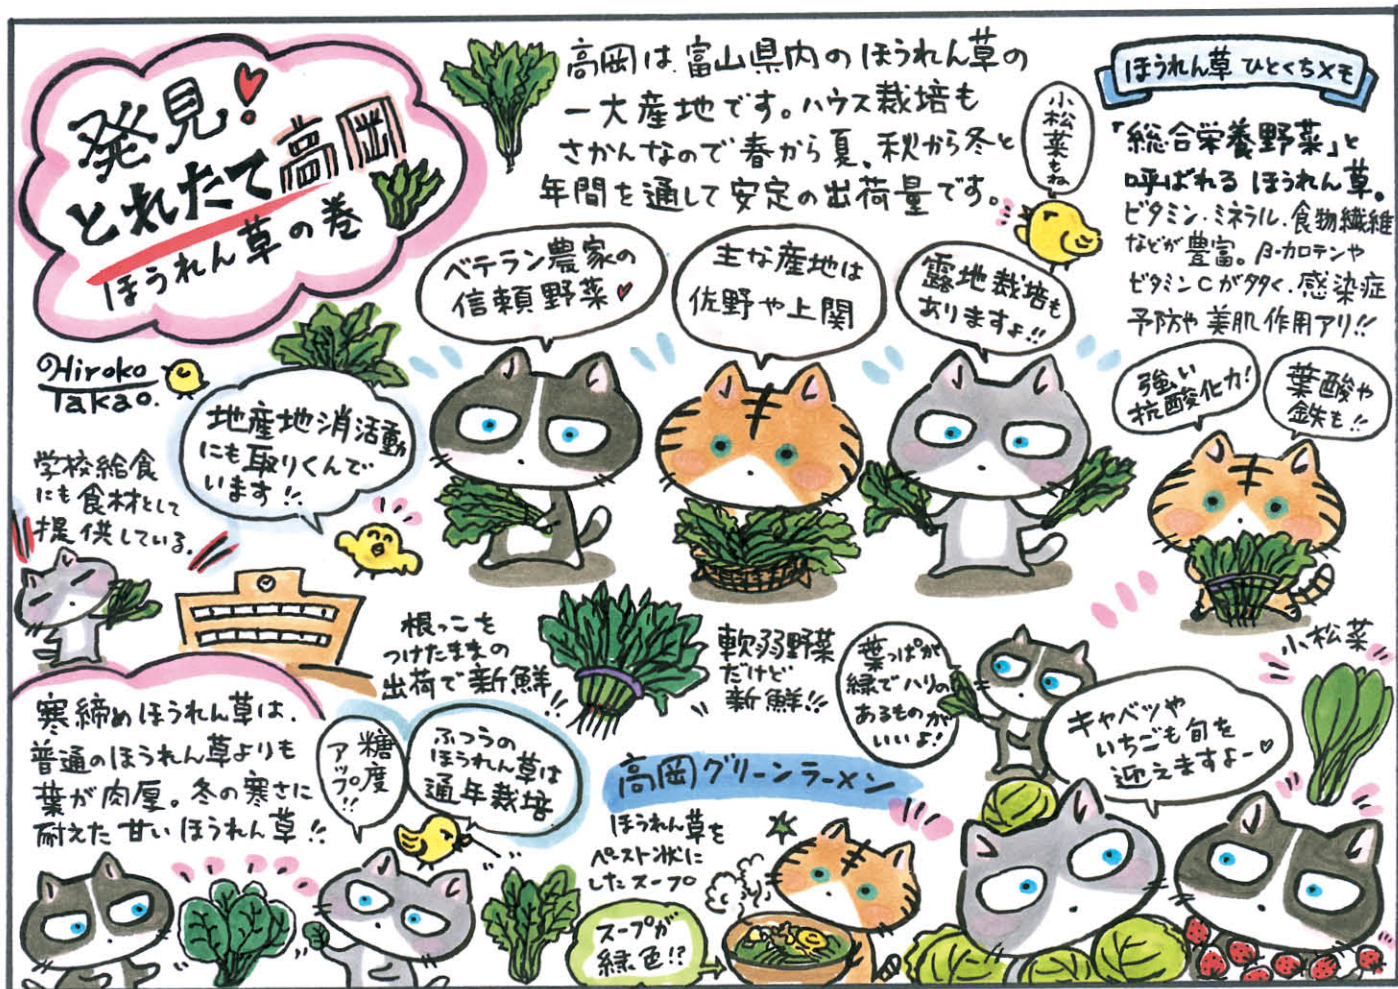 発見!
とれたて高岡
ほうれん草の巻
高岡は富山県内のほうれん草の
一大産地です。ハウス栽培も
さかんなので春から夏、秋から冬と
年間を通して安定の出荷量です。
小松菜もね
ほうれん草ひとくちメモ
「総合栄養野菜」と
呼ばれるほうれん草。
ビタミン・ミネラル・食物繊維
などが豊富。β-カロテンや
ビタミンCが多く、感染症
予防や美肌作用アリ!!
ベテラン農家の
信頼野菜
主な産地は
佐野や上関
露地栽培も
ありますよ!!
強い
抗酸化力!
葉酸や
鉄も!!
Hiroko
Takao.
地産地消活動
にも取りくんで
います!!
学校給食
にも食材として
提供している。
根っこを
つけたままの
出荷で新鮮!!
軟弱野菜
だけど
新鮮!!
葉っぱが
緑でハリの
あるものが
いいよ!
小松菜
キャベツや
いちごも旬を
迎えますよー
寒締めほうれん草は、
普通のほうれん草よりも
葉が肉厚。冬の寒さに
耐えた甘いほうれん草!!
糖度
アップ!!
ふつうの
ほうれん草は
通年栽培
高岡グリーンラーメン
ほうれん草を
ペースト状に
したスープ
スープが
緑色!?